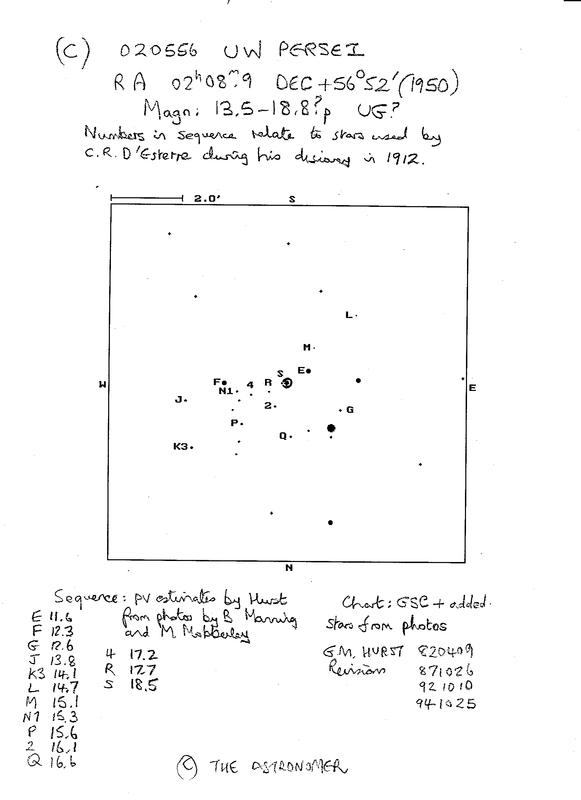 (C) 020556 UW PERSEI
RA 02ʰ08ᵐ.9 DEC +56°52′(1950)
Magn: 13.5-18.8?p UG?
Numbers in sequence relate to stars used by
C.R. D'Esterre during his discovery in 1912.
2.0' S
L
M
S E
F 4 R
N1
W E
J
2 G
P
Q
K3
N
Sequence: pv estimates by Hurst
from photos by B Manning
and M Mobberley
E 11.6
F 12.3
G 12.6
J 13.8
K3 14.1
L 14.7
M 15.1
N1 15.3
P 15.6
2 16.1
Q 16.6
4 17.2
R 17.7
S 18.5
Chart: GSC + added
stars from photos
G.M. HURST 820409
Revision 871026
921010
941025
(C) THE ASTRONOMER